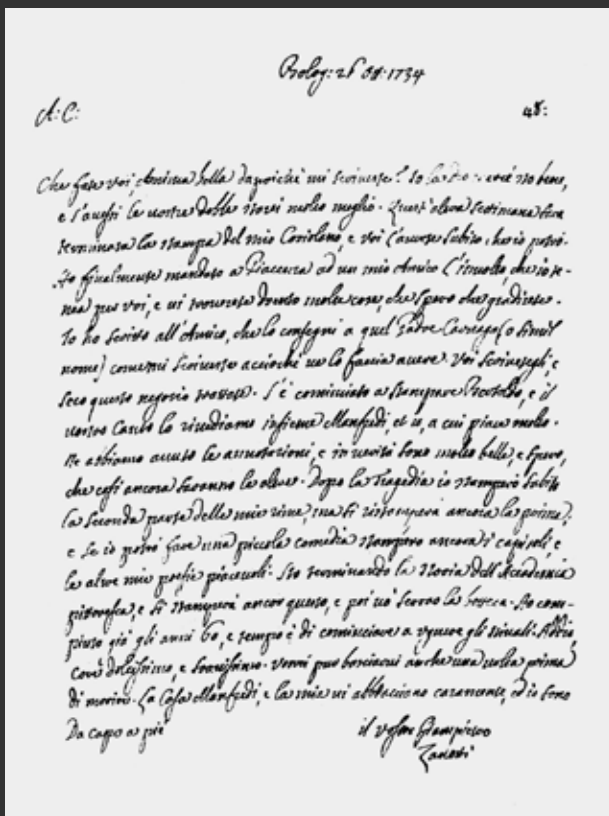 Bolog: 26 8b: 1734
A: C:
48:
Che fate voi, Anima bella dapoichè mi scriveste? Io sto bene,
e s'aughi la vostra molto meglio. Quest'altra settimana sarà
terminata la stampa del mio Coriolano, e voi l'avrete subito, ch'io potrò.
Ho finalmente mandato a Piacenza ad un mio Amico l'involto, che io te-
nea per voi, e vi troverete drento molte cose, che spero che gradirete.
Io ho scritto all'Amico, che lo consegni a quel Padre (o simil
nome) come mi scriveste acciochè ve lo faccia avere. Voi scrivetegli, e
seco questo negozio. S'è cominciato a stampare, e il
vostro Canto lo rivediamo insieme Manfredi, et io, a cui piace molto.
Ne abbiamo avuto le annotazioni, e in verità sono molto belle, e spero,
che così ancora saranno le altre. Dopo la Tragedia io stamperò subito
la seconda parte delle mie rime, ma si ristamperà ancora la prima;
e se io potrò fare una piccola comedia stamperò ancora i capitoli, e
le altre mie poesie piacevoli. Sto terminando la storia dell'Accademia
e si stamperà ancor questa, e poi vò serrar la bottega. Ho com-
piuto già gli anni 60, e tempo è di cominciare a gli. Addio,
dolcissimo, e. Vorrei pur baciarvi anche una volta prima
di morire. La Casa Manfredi, e la mia vi abbracciano caramente, ed io sono
Da capo a piè
il vostro Giampietro
Zanotti